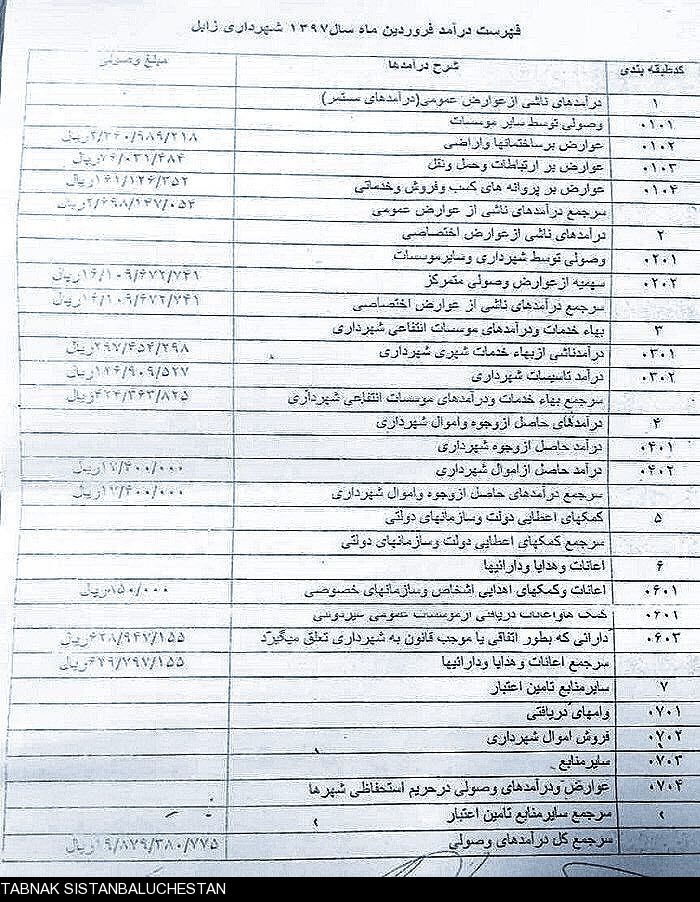 فهرست درآمد فروردین ماه سال۱۳۹۷ شهرداری زابل
کدطبقه بندی شرح درآمدها مبلغ وصولی
۱ درآمدهای ناشی ازعوارض عمومی(درآمدهای مستمر)
۰۱۰۱ وصولی توسط سایر موسسات
۰۱۰۲ عوارض برساختمانها واراضی ۲/۴۴۰/۹۸۹/۲۱۸ریال
۰۱۰۳ عوارض بر ارتباطات وحمل ونقل ۹۶/۰۳۱/۴۸۴ریال
۰۱۰۴ عوارض بر پروانه های کسب وفروش وخدماتی ۱۶۱/۱۲۶/۳۵۲ریال
سرجمع درآمدهای ناشی از عوارض عمومی ۲/۶۹۸/۱۴۷/۰۵۴ریال
۲ درآمدهای ناشی ازعوارض اختصاصی
۰۲۰۱ وصولی توسط شهرداری وسایرموسسات
۰۲۰۲ سهمیه ازعوارض وصولی متمرکز ۱۶/۱۰۹/۶۷۲/۷۴۱ریال
سرجمع درآمدهای ناشی از عوارض اختصاصی ۱۶/۱۰۹/۶۷۲/۷۴۱ریال
۳ بهاء خدمات ودرآمدهای موسسات انتفاعی شهرداری
۰۳۰۱ درآمدناشی ازبهاء خدمات شهری شهرداری ۲۹۷/۴۵۴/۲۹۸ریال
۰۳۰۲ درآمد تاسیسات شهرداری ۱۲۶/۹۰۹/۵۲۷ریال
سرجمع بهاء خدمات ودرآمدهای موسسات انتفاعی شهرداری ۴۲۴/۳۶۳/۸۲۵ریال
۴ درآمدهای حاصل ازوجوه واموال شهرداری
۰۴۰۱ درآمد حاصل ازوجوه شهرداری
۰۴۰۲ درآمد حاصل ازاموال شهرداری ۱۷/۴۰۰/۰۰۰ریال
سرجمع درآمدهای حاصل ازوجوه واموال شهرداری ۱۷/۴۰۰/۰۰۰ریال
۵ کمکهای اعطایی دولت وسازمانهای دولتی
سرجمع کمکهای اعطایی دولت وسازمانهای دولتی
۶ اعانات وهدایا ودارائیها
۰۶۰۱ اعانات وکمکهای اهدایی اشخاص وسازمانهای خصوصی ۸۵۰/۰۰۰ریال
دریافتی ازموسسات عمومی
۰۶۰۳ دارائی که بطور اتفاقی یا موجب قانون به شهرداری تعلق میگیرد ۶۲۸/۹۴۷/۱۵۵ریال
سرجمع اعانات وهدایا ودارائیها ۶۲۹/۷۹۷/۱۵۵ریال
۷ سایرمنابع تامین اعتبار
۰۷۰۱ وامهای دریافتی
۰۷۰۲ فروش اموال شهرداری
۰۷۰۳ سایرمنابع
۰۷۰۴ عوارض ودرآمدهای وصولی درحریم استحفاظی شهرها
سرجمع سایرمنابع تامین اعتبار
سرجمع کل درآمدهای وصولی ۱۹/۸۷۹/۳۸۰/۷۷۵ریال
TABNAK SISTANBALUCHESTAN